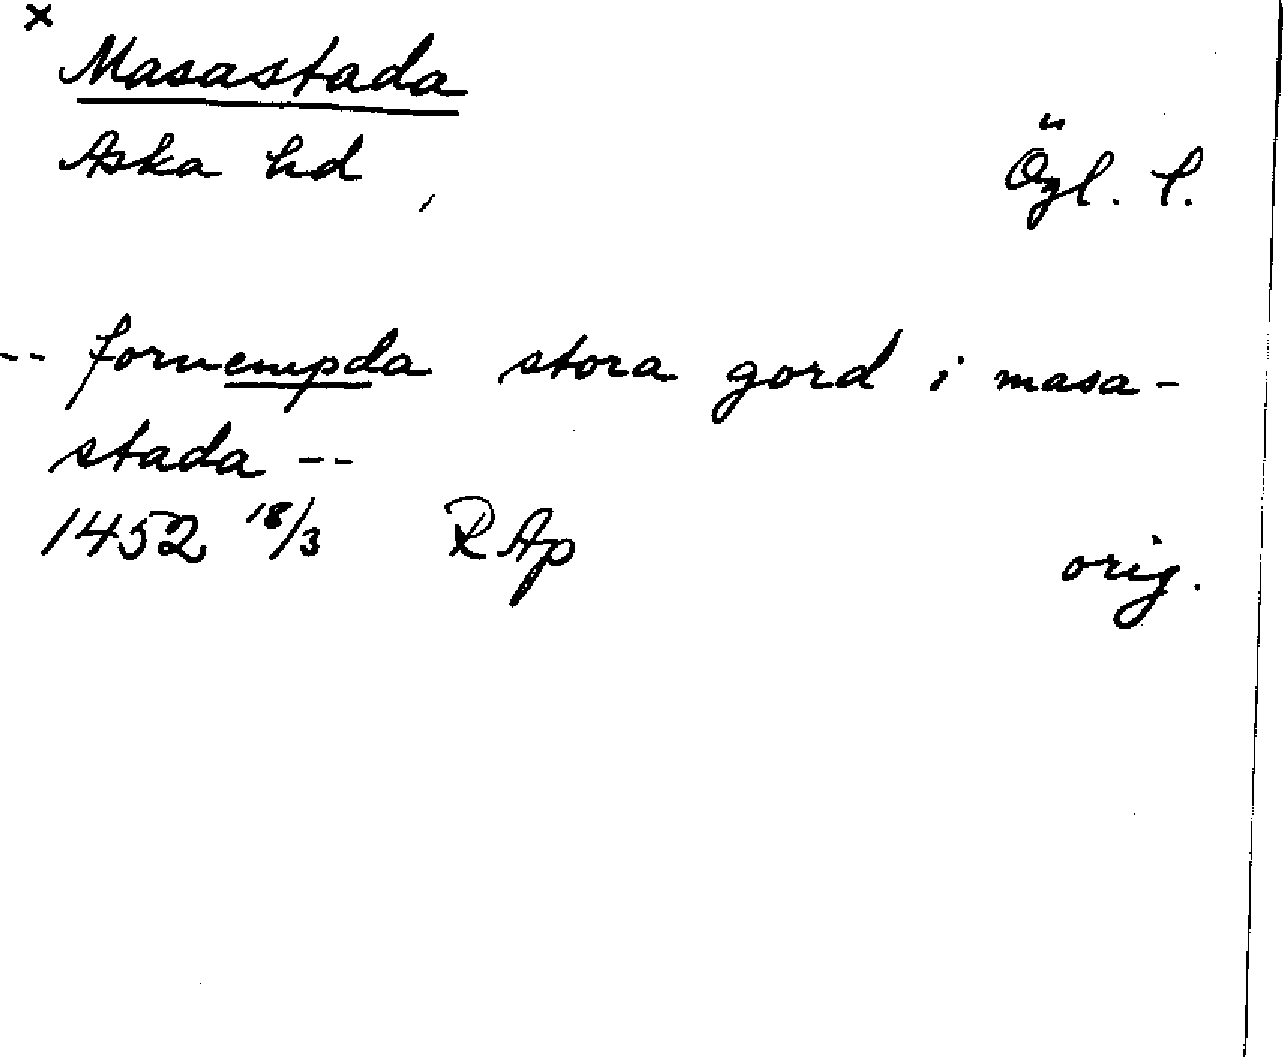 x
Masastada
Aska hd, Ögl. l.
-- fornempda stora gord i masa-
stada --
1452 18/3 RAp orig.